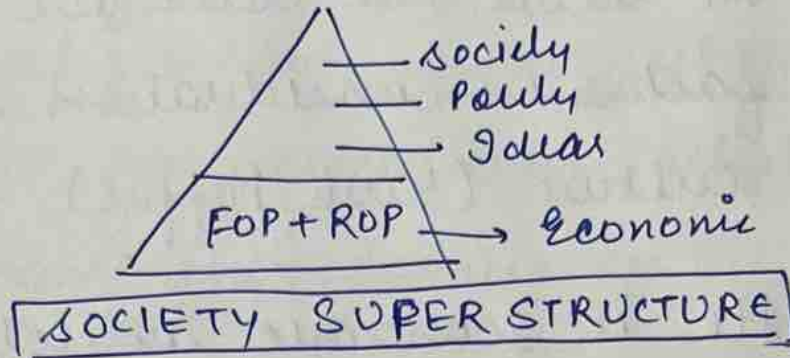 Society
Polity
Ideas
FOP + ROP → Economic
SOCIETY SUPER STRUCTURE